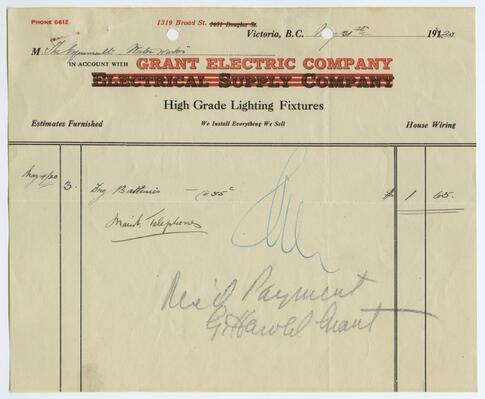 PHONE 6612
1319 Broad St. 2651 Douglas St.
Victoria, B.C. May 31st 1920
M The Esquimalt Water Works
IN ACCOUNT WITH GRANT ELECTRIC COMPANY
ELECTRICAL SUPPLY COMPANY
High Grade Lighting Fixtures
Estimates Furnished We Install Everything We Sell House Wiring
3 Dry Batteries - @ 55c $ 1 65
Maint. Telephones
Rec'd Payment
G. Harold Grant